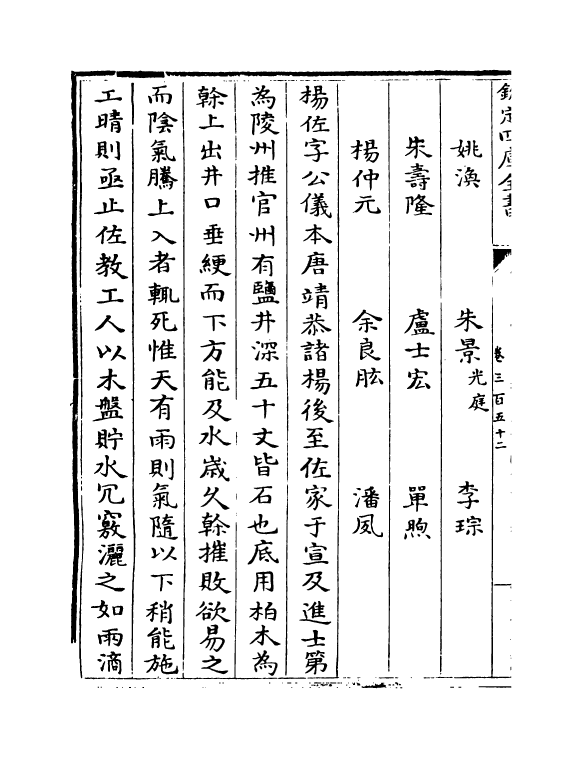 欽定四庫全書
卷三百五十二
姚渙 朱景光庭 李琮
朱壽隆 盧士宏 單煦
楊仲元 余良肱 潘夙
楊佐字公儀本唐靖恭諸楊後至佐家于宣及進士第
為陵州推官州有鹽井深五十丈皆石也底用柏木為
榦上出井口垂綆而下方能及水歲久榦摧敗欲易之
而陰氣騰上入者輒死惟天有雨則氣隨以下稍能施
工晴則亟止佐教工人以木盤貯水冗竅灑之如雨滴